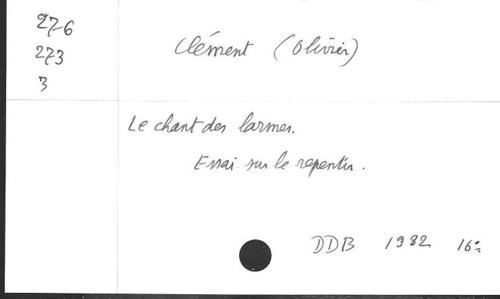 276
273
3
Clément (Olivier)
Le chant des larmes.
Essai sur le repentir.
DDB 1982 16°